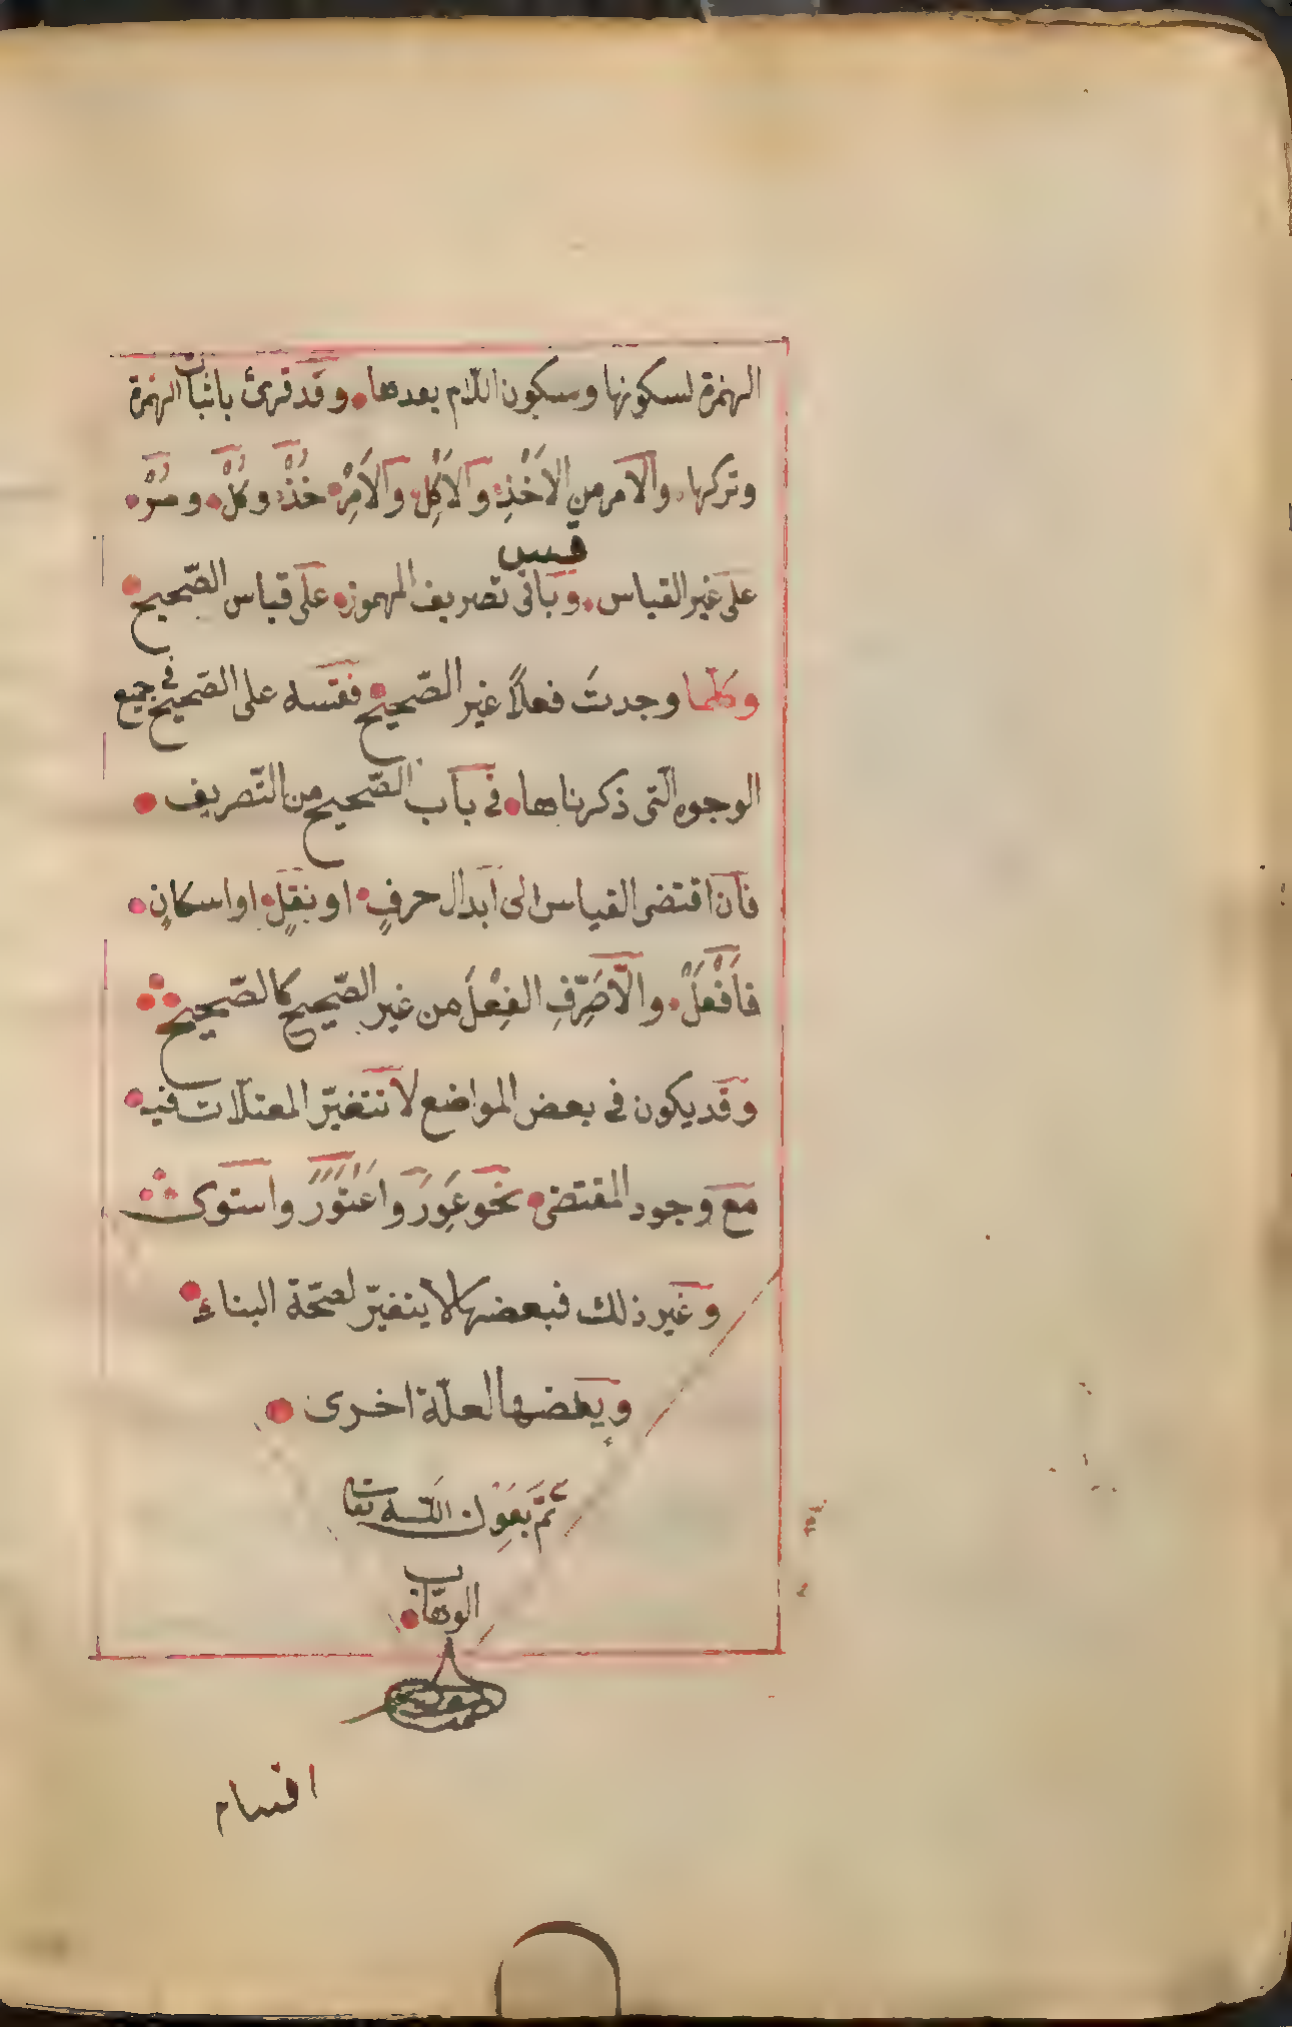 الهمزة لسكونها وسكون اللّام بعدها وقد قرئ باثبات الهمزة
وتركها والامر من الاَخْذِ والاَكْلِ والاَمْرِ خُذْ وكُلْ ومُرْ
على غير القياس وباقى تصريف المهموز على قياس الصّحيح
وكلّما وجدتَ فعلاً غير الصّحيح فقسه على الصّحيح فى جميع
الوجوه الّتى ذكرناها فى باب الصّحيح من التّصريف
فان اقتضى القياس الى ابدال حرفٍ او نقلٍ او اسكانٍ
فاَفْعَلْ والّا صَرِّفِ الفِعْلَ من غير الصّحيح كالصّحيح
وقد يكون فى بعض المواضع لا تتغيّر المعتلّات فيه
مع وجود المقتضى نحو عَوِرَ واعْتَوَرَ واستوى
وغير ذلك فبعضها لا يتغيّر لصحّة البناء
وبعضها لعلّة اخرى
تمّ بعون اللّه
الوهّاب
اقسام